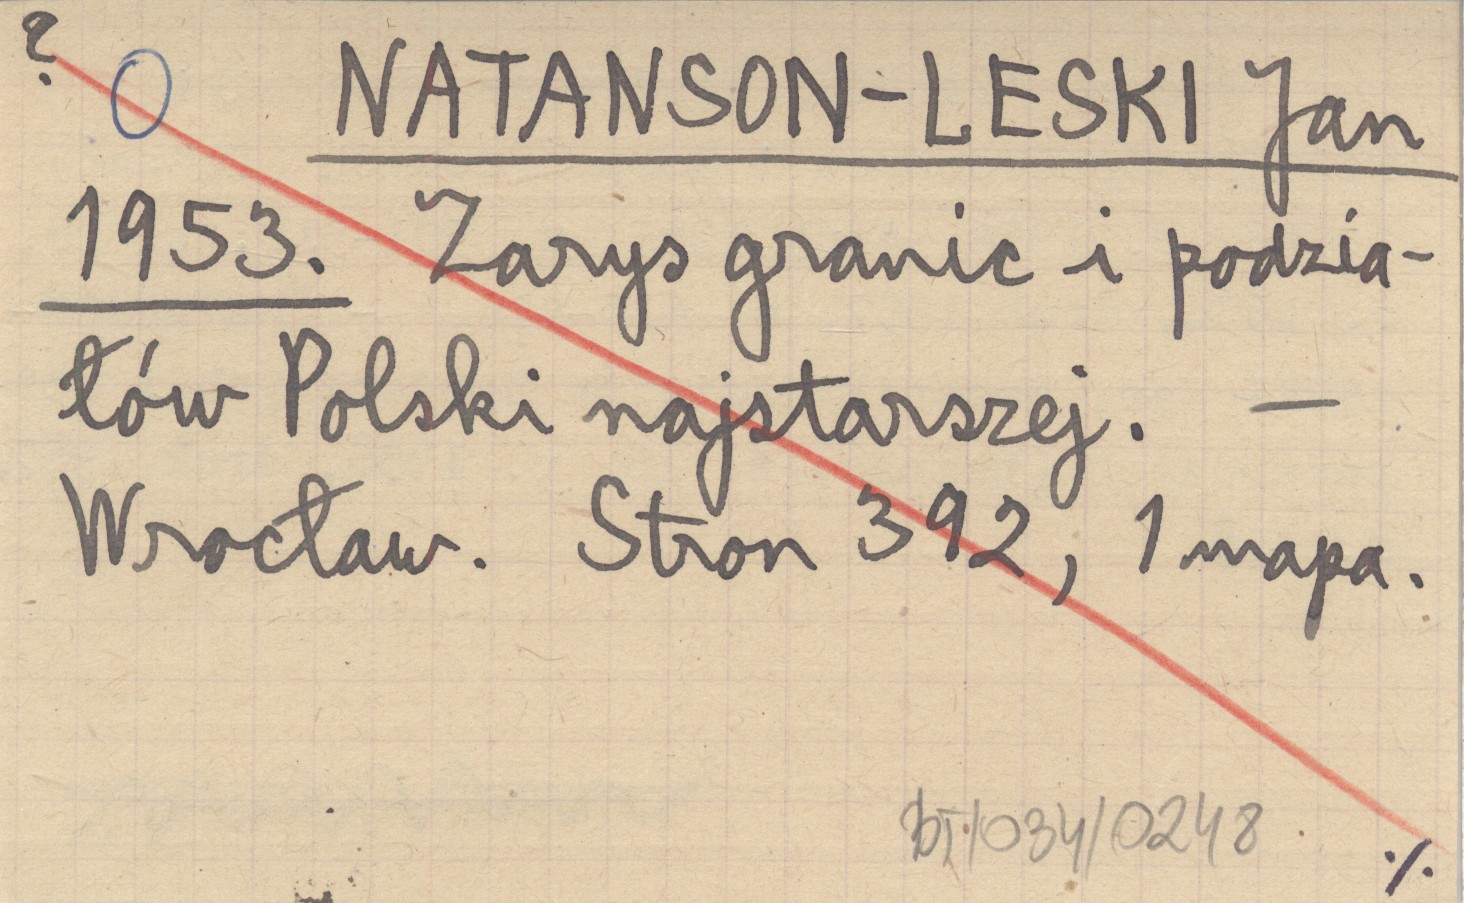 ?
O NATANSON-LESKI Jan
1953. Zarys granic i podzia-
łów Polski najstarszej. —
Wrocław. Stron 392, 1 mapa.
bT/034/0248
./.